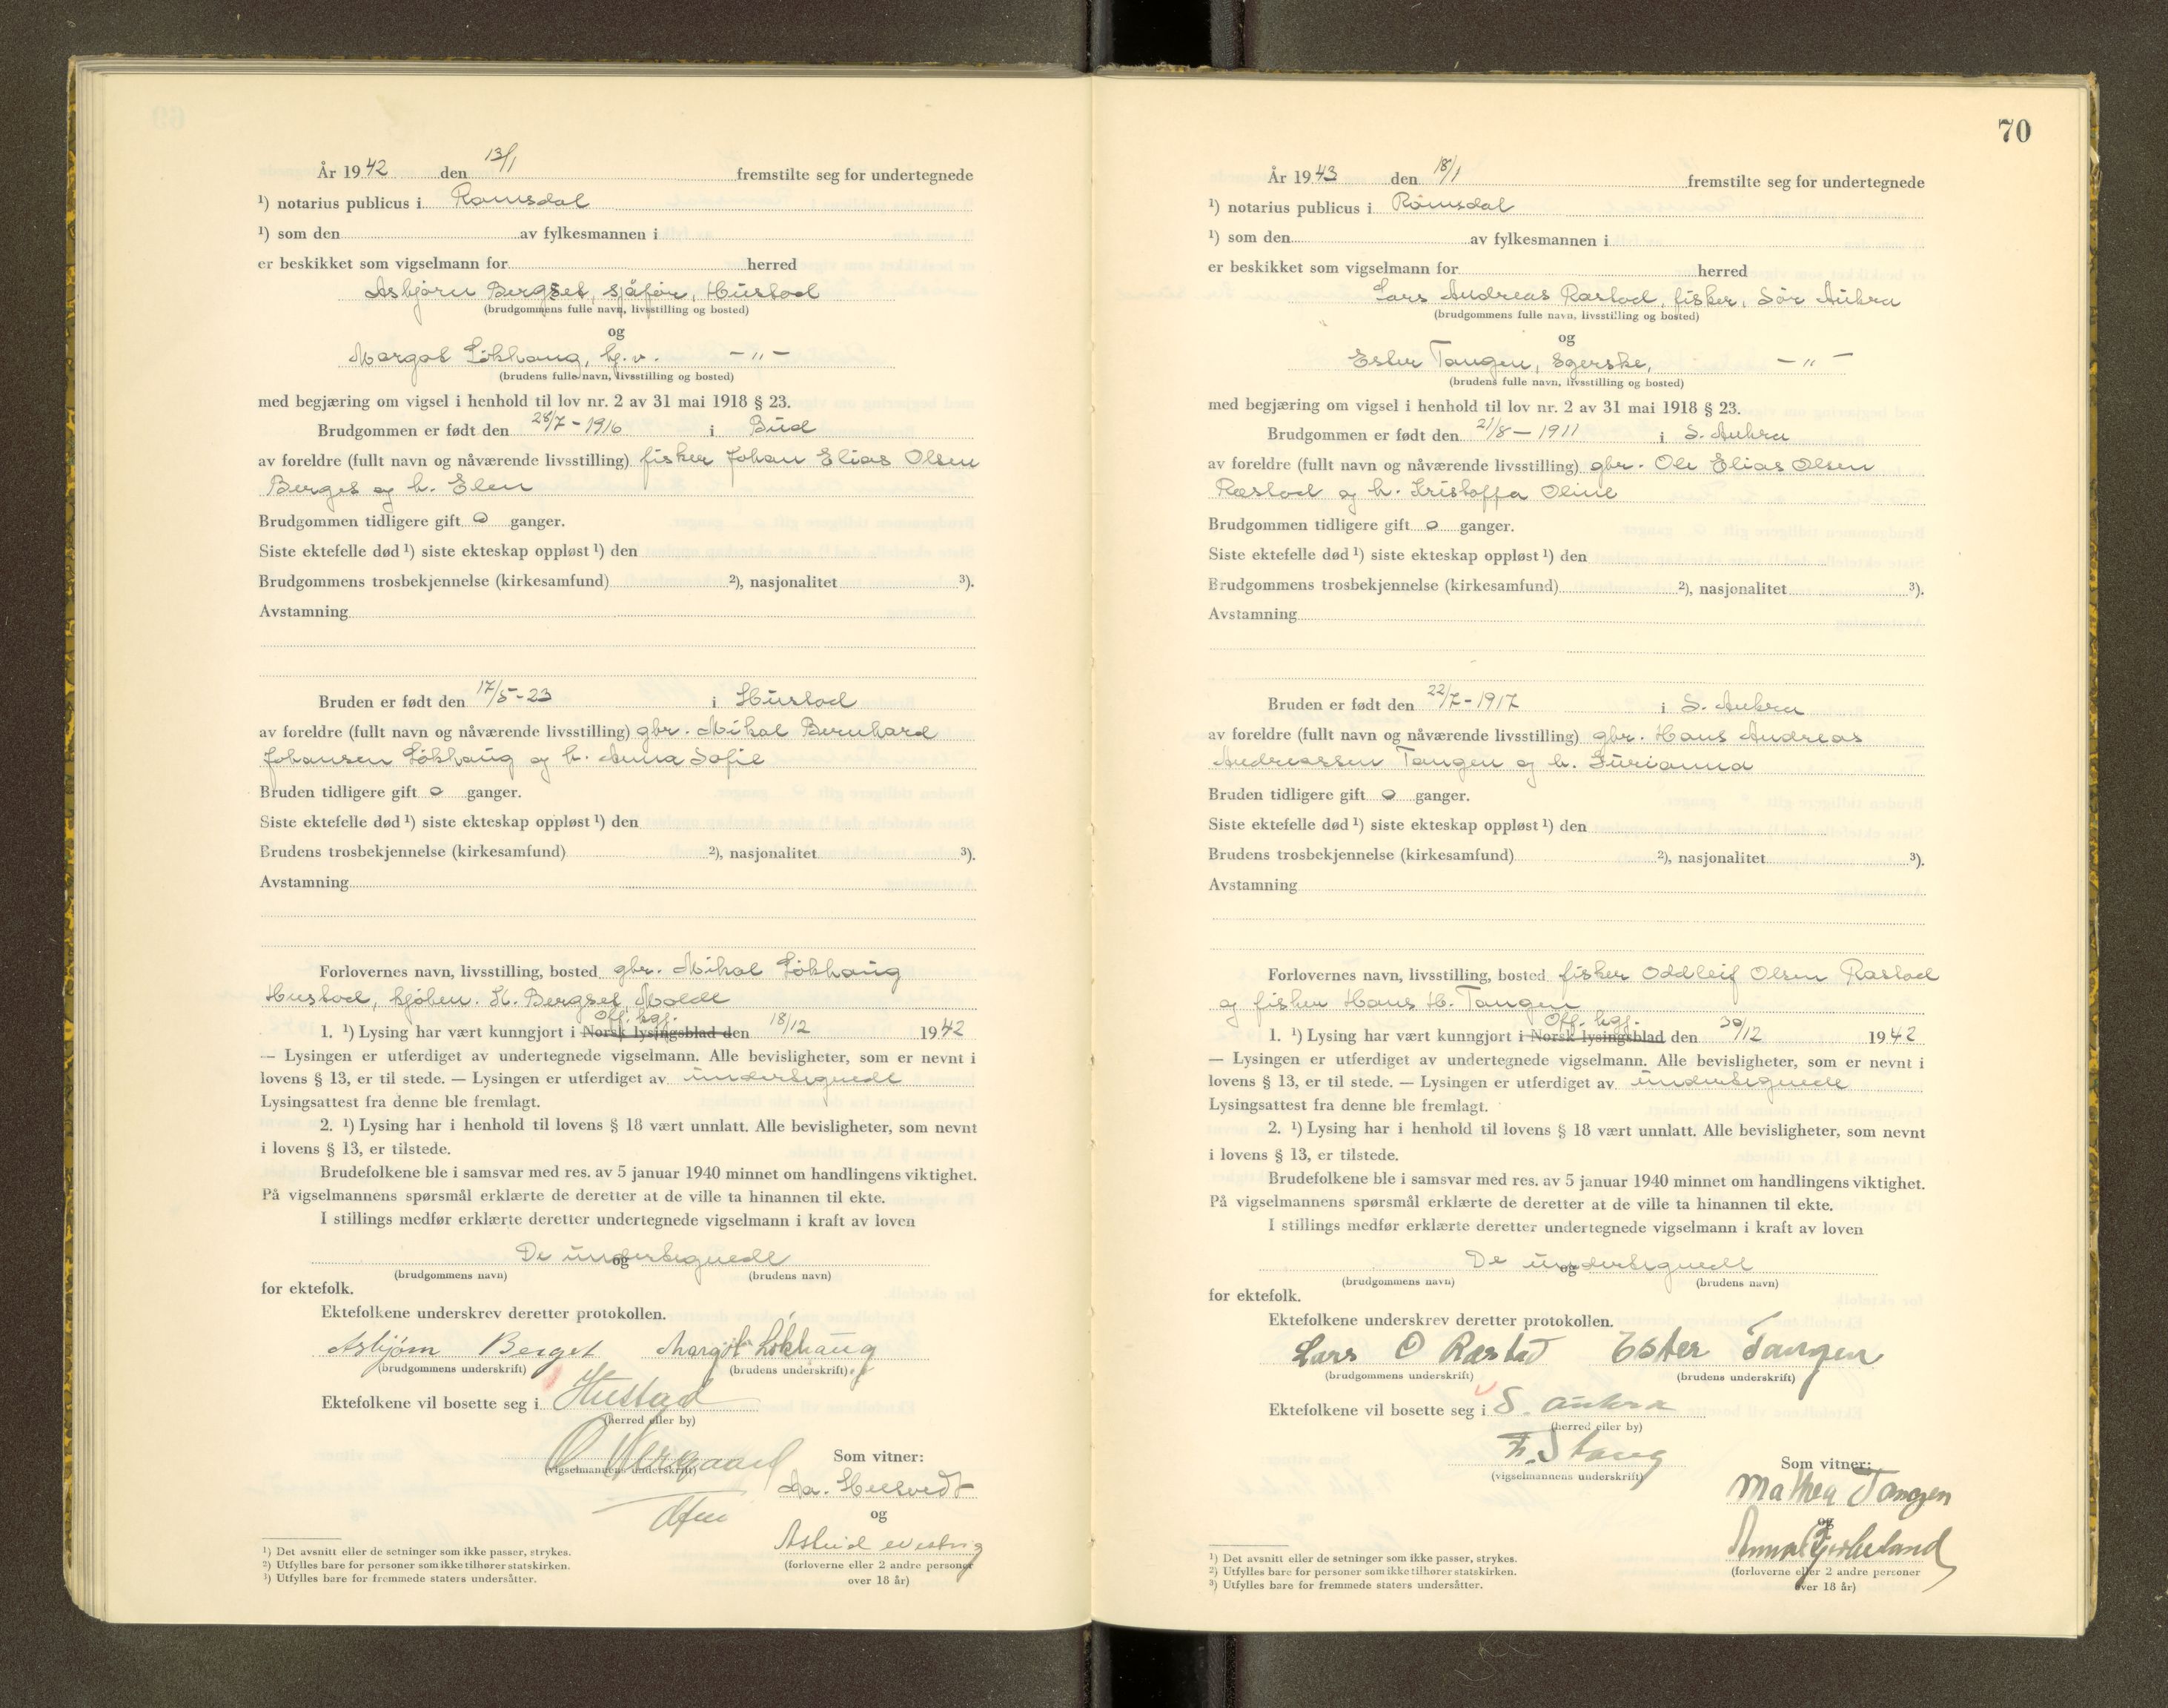 År 1942 den 13/1 fremstilte seg for undertegnede
¹) notarius publicus i Romsdal
¹) som den av fylkesmannen i
er beskikket som vigselmann for herred
Asbjørn Bergset, sjåfør, Hustad
(brudgommens fulle navn, livsstilling og bosted)
og
Margot Løkhaug, hj.v. – " –
(brudens fulle navn, livsstilling og bosted)
med begjæring om vigsel i henhold til lov nr. 2 av 31 mai 1918 § 23.
Brudgommen er født den 28/7 - 1916 i Bud
av foreldre (fullt navn og nåværende livsstilling) fisker Johan Elias Olsen
Berges og h. Elen
Brudgommen tidligere gift 0 ganger.
Siste ektefelle død ¹) siste ekteskap oppløst ¹) den
Brudgommens trosbekjennelse (kirkesamfund) ²), nasjonalitet ³).
Avstamning
Bruden er født den 17/5-23 i Hustad
av foreldre (fullt navn og nåværende livsstilling) gbr. Mikal Bernhard
Johansen Løkhaug og h. Anna Sofie
Bruden tidligere gift 0 ganger.
Siste ektefelle død ¹) siste ekteskap oppløst ¹) den
Brudens trosbekjennelse (kirkesamfund) ²), nasjonalitet ³).
Avstamning
Forlovernes navn, livsstilling, bosted gbr. Mikal Løkhaug
Hustad, kjøbm. K. Bergset Molde
Off. kgj.
1. ¹) Lysing har vært kunngjort i Norsk lysingsblad den 18/12 1942
— Lysingen er utferdiget av undertegnede vigselmann. Alle bevisligheter, som er nevnt i
lovens § 13, er til stede. — Lysingen er utferdiget av undertegnede
Lysingsattest fra denne ble fremlagt.
2. ¹) Lysing har i henhold til lovens § 18 vært unnlatt. Alle bevisligheter, som nevnt
i lovens § 13, er tilstede.
Brudefolkene ble i samsvar med res. av 5 januar 1940 minnet om handlingens viktighet.
På vigselmannens spørsmål erklærte de deretter at de ville ta hinannen til ekte.
I stillings medfør erklærte deretter undertegnede vigselmann i kraft av loven
De undertegnede
og
(brudgommens navn) (brudens navn)
for ektefolk.
Ektefolkene underskrev deretter protokollen.
Asbjørn Berget Margot Løkhaug
(brudgommens underskrift) (brudens underskrift)
Ektefolkene vil bosette seg i Hustad
(herred eller by)
(vigselmannens underskrift)
Som vitner:
og
Astrid
(forloverne eller 2 andre personer
over 18 år)
¹) Det avsnitt eller de setninger som ikke passer, strykes.
²) Utfylles bare for personer som ikke tilhører statskirken.
³) Utfylles bare for fremmede staters undersåtter.
70
År 1943 den 18/1 fremstilte seg for undertegnede
¹) notarius publicus i Romsdal
¹) som den av fylkesmannen i
er beskikket som vigselmann for herred
Lars Andreas Rastad, fisker, Sør Aukra
(brudgommens fulle navn, livsstilling og bosted)
og
Ester Tangen, sgerske, – " –
(brudens fulle navn, livsstilling og bosted)
med begjæring om vigsel i henhold til lov nr. 2 av 31 mai 1918 § 23.
Brudgommen er født den 21/8 - 1911 i S. Aukra
av foreldre (fullt navn og nåværende livsstilling) gbr. Ole Elias Olsen
Rastad og h. Kristoffa Oline
Brudgommen tidligere gift 0 ganger.
Siste ektefelle død ¹) siste ekteskap oppløst ¹) den
Brudgommens trosbekjennelse (kirkesamfund) ²), nasjonalitet ³).
Avstamning
Bruden er født den 22/7 - 1917 i S. Aukra
av foreldre (fullt navn og nåværende livsstilling) gbr. Hans Andreas
Andreassen Tangen og h. Gurianna
Bruden tidligere gift 0 ganger.
Siste ektefelle død ¹) siste ekteskap oppløst ¹) den
Brudens trosbekjennelse (kirkesamfund) ²), nasjonalitet ³).
Avstamning
Forlovernes navn, livsstilling, bosted fisker Oddleif Olsen Rastad
og fisker Hans H. Tangen
Off. kgj.
1. ¹) Lysing har vært kunngjort i Norsk lysingsblad den 30/12 1942
— Lysingen er utferdiget av undertegnede vigselmann. Alle bevisligheter, som er nevnt i
lovens § 13, er til stede. — Lysingen er utferdiget av undertegnede
Lysingsattest fra denne ble fremlagt.
2. ¹) Lysing har i henhold til lovens § 18 vært unnlatt. Alle bevisligheter, som nevnt
i lovens § 13, er tilstede.
Brudefolkene ble i samsvar med res. av 5 januar 1940 minnet om handlingens viktighet.
På vigselmannens spørsmål erklærte de deretter at de ville ta hinannen til ekte.
I stillings medfør erklærte deretter undertegnede vigselmann i kraft av loven
De undertegnede
og
(brudgommens navn) (brudens navn)
for ektefolk.
Ektefolkene underskrev deretter protokollen.
Lars O Rastad Ester Tangen
(brudgommens underskrift) (brudens underskrift)
Ektefolkene vil bosette seg i S. Aukra
(herred eller by)
F. Stang
(vigselmannens underskrift)
Som vitner:
Mathea Tangen
og
Anna
(forloverne eller 2 andre personer
over 18 år)
¹) Det avsnitt eller de setninger som ikke passer, strykes.
²) Utfylles bare for personer som ikke tilhører statskirken.
³) Utfylles bare for fremmede staters undersåtter.